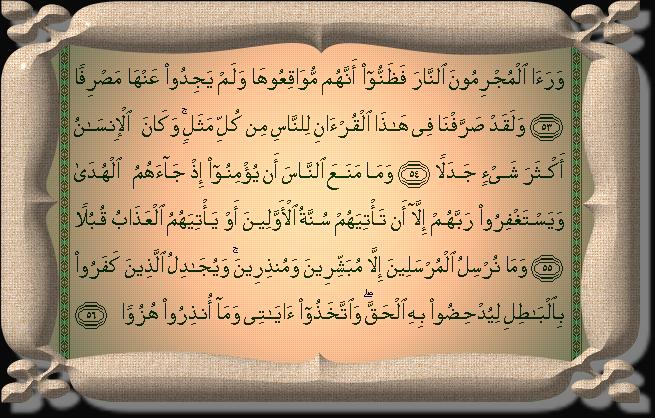 وَرَءَا ٱلْمُجْرِمُونَ ٱلنَّارَ فَظَنُّوٓا۟ أَنَّهُم مُّوَاقِعُوهَا وَلَمْ يَجِدُوا۟ عَنْهَا مَصْرِفًا
٥٣ وَلَقَدْ صَرَّفْنَا فِى هَـٰذَا ٱلْقُرْءَانِ لِلنَّاسِ مِن كُلِّ مَثَلٍ ۚ وَكَانَ ٱلْإِنسَـٰنُ
أَكْثَرَ شَىْءٍ جَدَلًا ٥٤ وَمَا مَنَعَ ٱلنَّاسَ أَن يُؤْمِنُوٓا۟ إِذْ جَآءَهُمُ ٱلْهُدَىٰ
وَيَسْتَغْفِرُوا۟ رَبَّهُمْ إِلَّآ أَن تَأْتِيَهُمْ سُنَّةُ ٱلْأَوَّلِينَ أَوْ يَأْتِيَهُمُ ٱلْعَذَابُ قُبُلًا
٥٥ وَمَا نُرْسِلُ ٱلْمُرْسَلِينَ إِلَّا مُبَشِّرِينَ وَمُنذِرِينَ ۚ وَيُجَـٰدِلُ ٱلَّذِينَ كَفَرُوا۟
بِٱلْبَـٰطِلِ لِيُدْحِضُوا۟ بِهِ ٱلْحَقَّ ۖ وَٱتَّخَذُوٓا۟ ءَايَـٰتِى وَمَآ أُنذِرُوا۟ هُزُوًا ٥٦